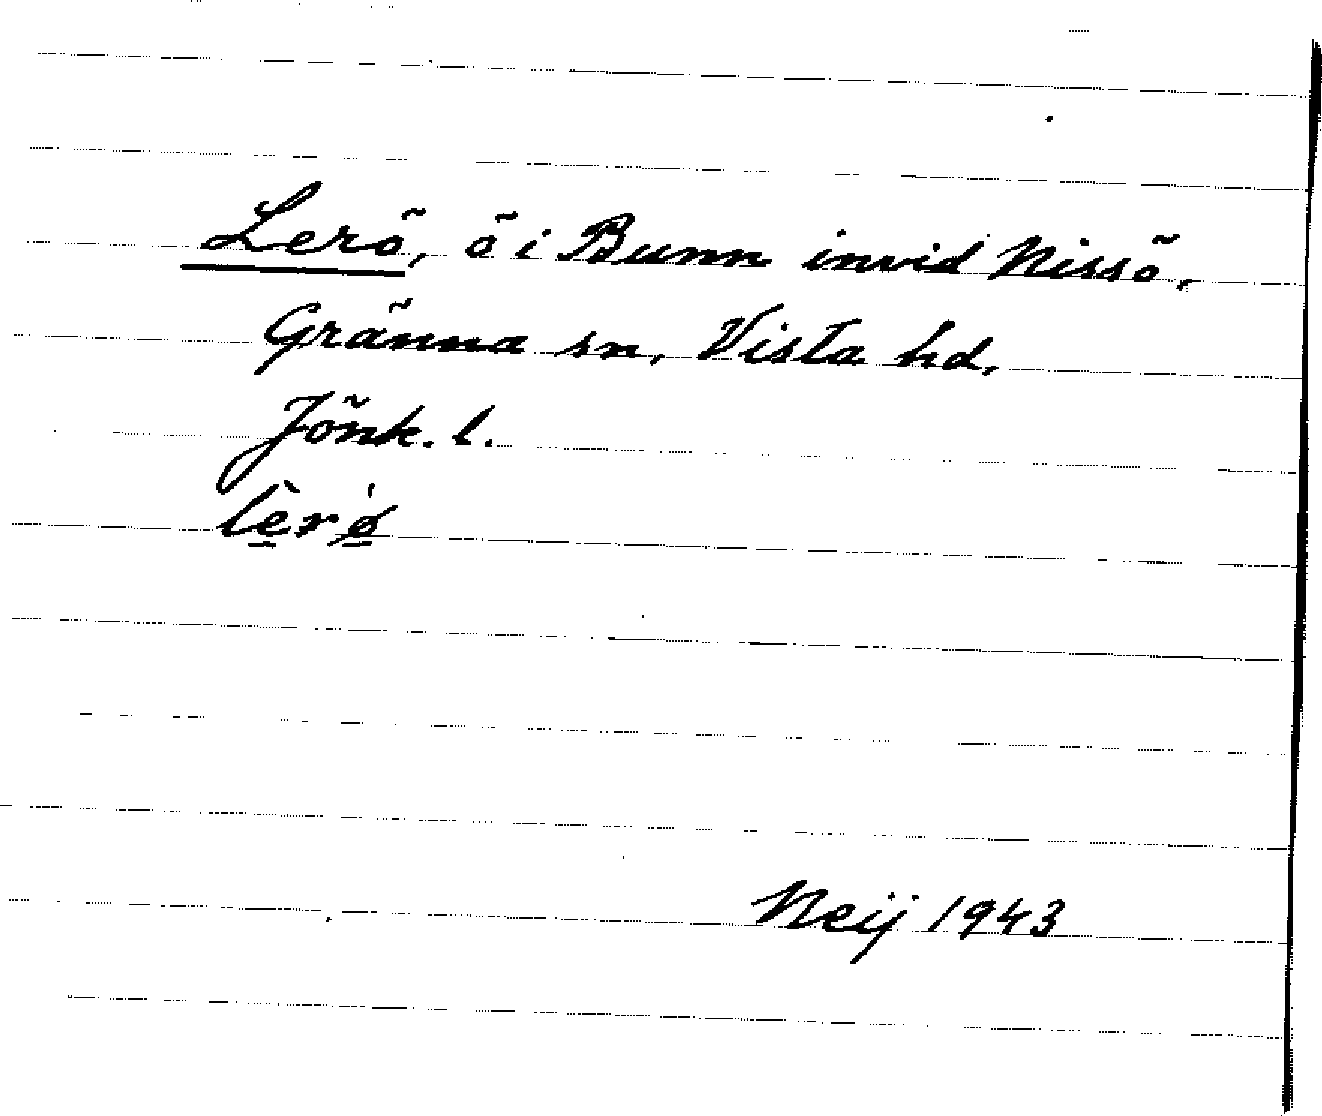 Lerö, ö i Bunn invid Nissö,
Gränna sn, Vista hd,
Jönk. l.
lè̱rǿ̱
Neij 1943